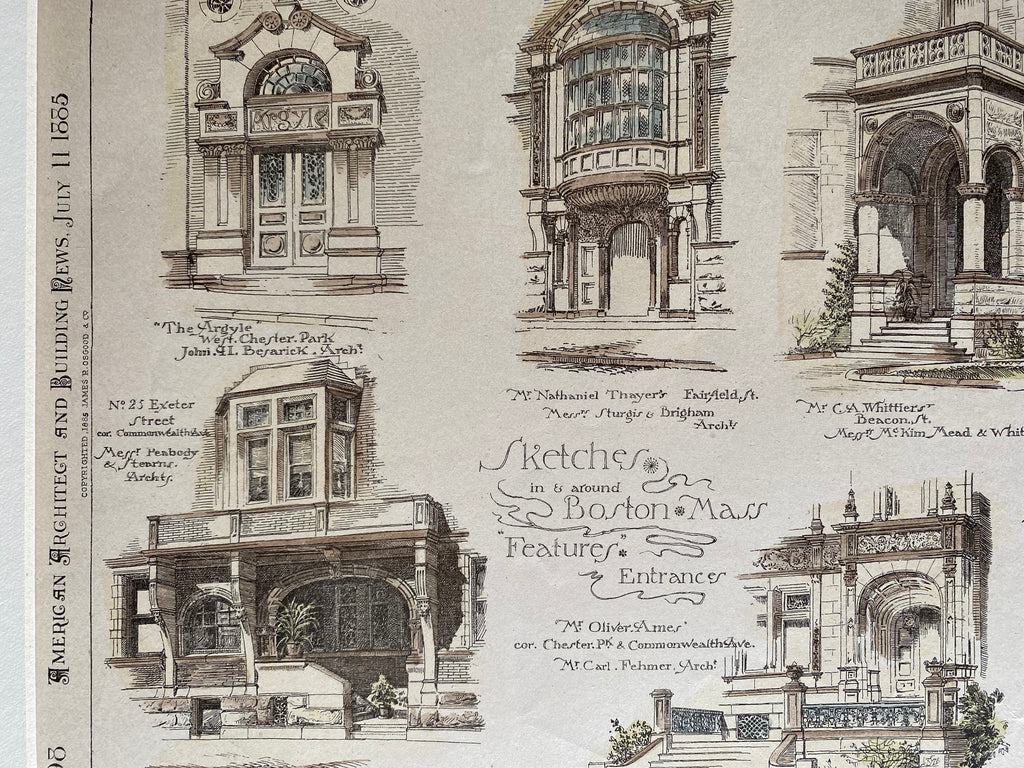 AMERICAN ARCHITECT AND BUILDING NEWS, JULY 11 1885
COPYRIGHTED, 1885 JAMES R. OSGOOD & CO
Argyle
"The Argyle"
West. Chester. Park
John. H. L. Besarick. Archt.
No. 25 Exeter
Street
cor. Commonwealth Ave.
Messrs Peabody
& Stearns.
Archts.
Mr Nathaniel Thayer's Fairfield, St.
Messrs Sturgis & Brigham
Archts
Mr C. A. Whittiers'
Beacon. St.
Messrs McKim, Mead & Whit
Sketches
in & around
Boston Mass
"Features"
Entrances
Mr Oliver. Ames'
cor. Chester. Pk & Commonwealth Ave.
Mr. Carl. Fehmer, Archt